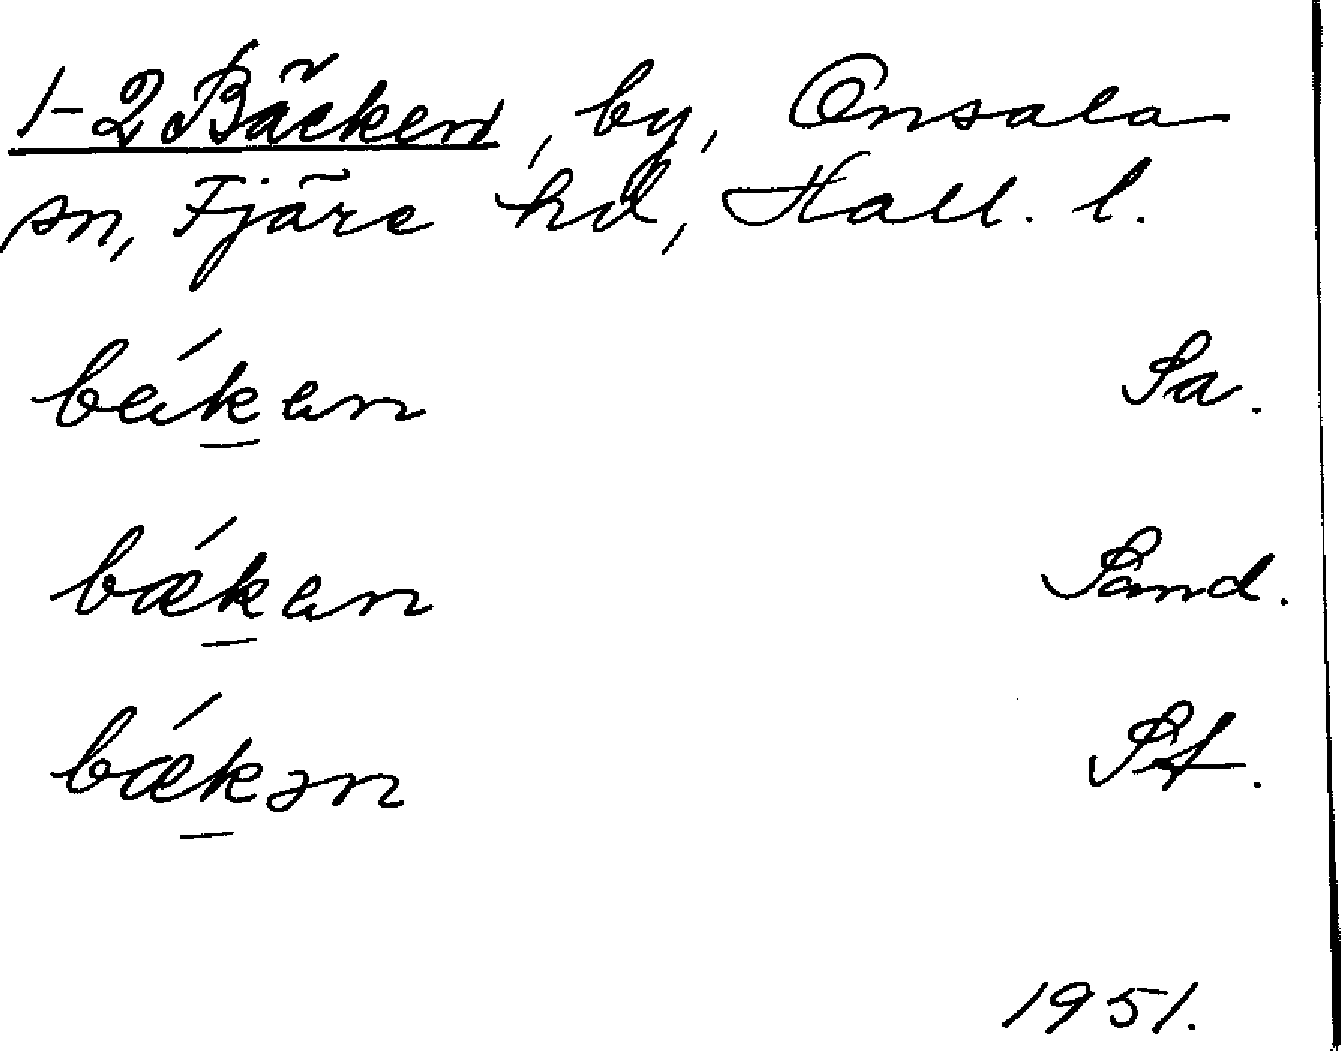 1-2 Bäcken, by, Onsala
sn, Fjäre hd, Hall. l.
bǽkan Sa.
bǽkan Sand.
bǽkən St.
1951.